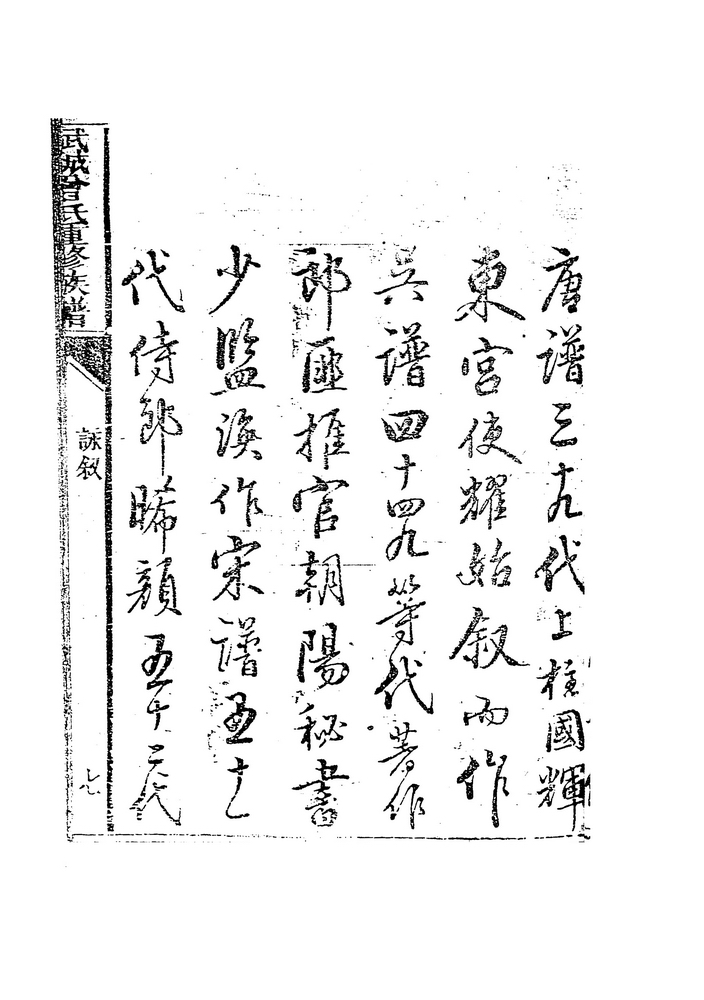 唐譜三十九代上柱國輝
東宮使耀始叙而作
吳譜四十四九等代著作
郎匪推官朝陽秘書
少監渙作宋譜五十一
代侍郎晞顏五十二代
武城曾氏重修族譜
叙